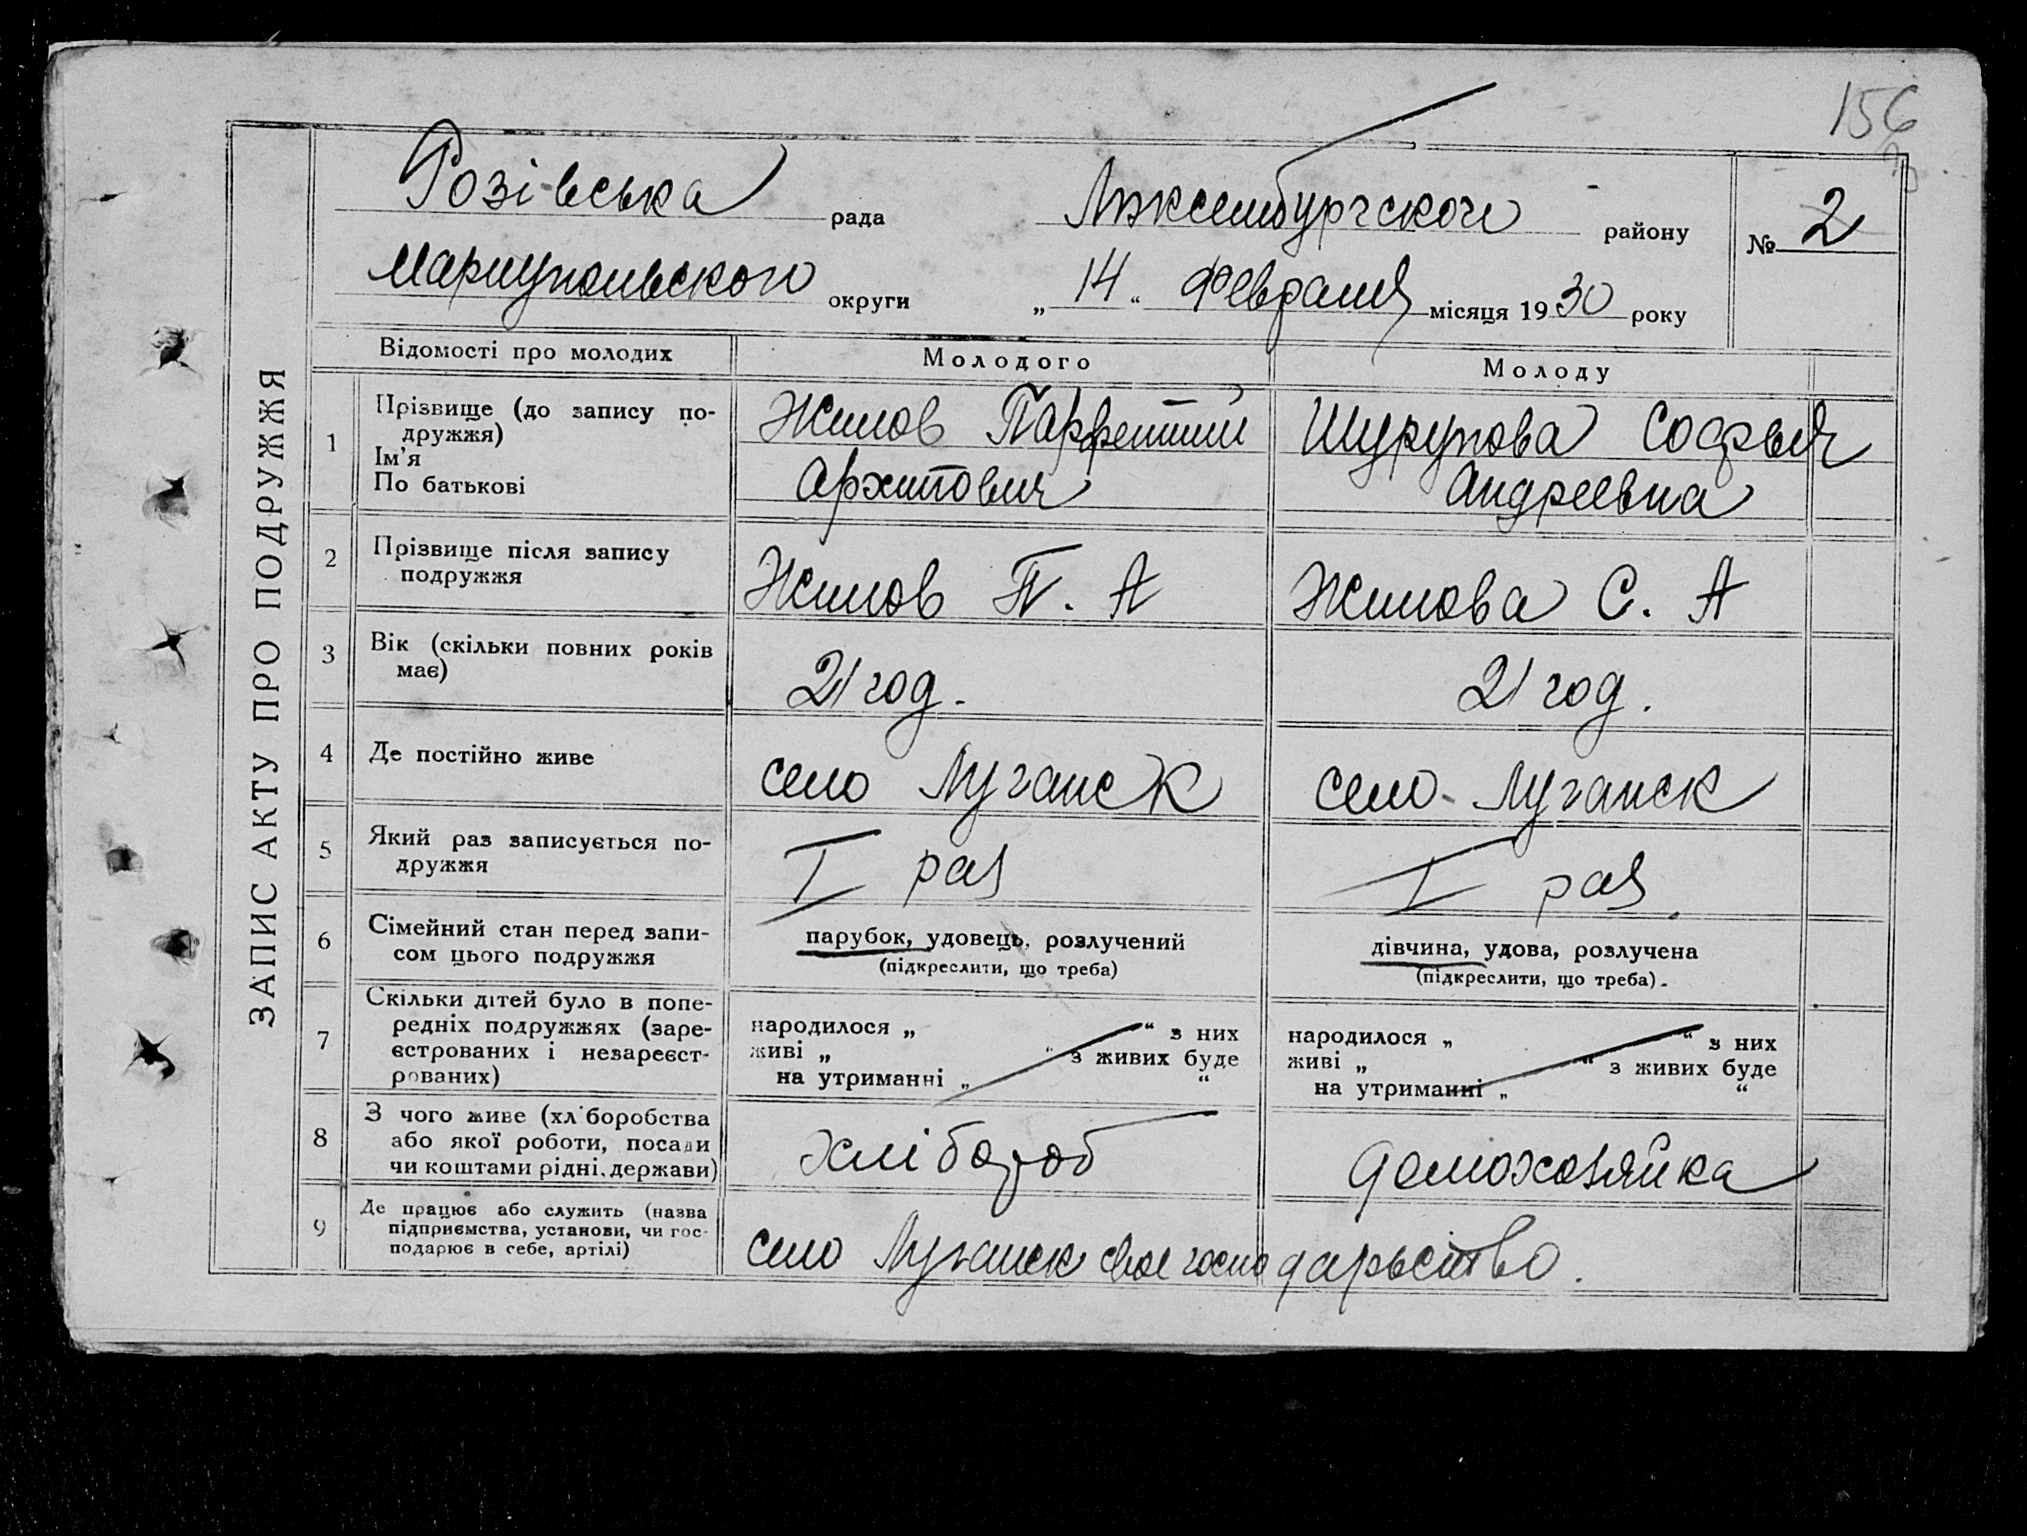 156
Розівська рада Люксембургского району № 2
Мариупольского округи „ 14 “ Февраля місяця 1930 року
ЗАПИС АКТУ ПРО ПОДРУЖЖЯ
Відомості про молодих Молодого Молоду
1 Прізвище (до запису по-
дружжя)
Ім'я
По батькові
Жилов Парфентий
Архипович
Шурупова Софья
Андреевна
2 Прізвище після запису
подружжя
Жилов П. А
Жилова С. А
3 Вік (скільки повних років
має)
21 год.
21 год.
4 Де постійно живе
село Луганск
село Луганск
5 Який раз записується по-
дружжя
I раз
I раз.
6 Сімейний стан перед запи-
сом цього подружжя
парубок, удовець, розлучений
(підкреслити, що треба)
дівчина, удова, розлучена
(підкреслити, що треба).
7 Скільки дітей було в попе-
редніх подружжях (заре-
єстрованих і незареєст-
рованих)
народилося „ “ з них
живі „ “ з живих буде
на утриманні „ “
народилося „ “ з них
живі „ “ з живих буде
на утриманні „ “
8 З чого живе (хліборобства
або якої роботи, посади
чи коштами рідні, держави)
хлібороб
домохозяйка
9 Де працює або служить (назва
підприємства, установи, чи гос-
подарює в себе, артілі)
село Луганск свое господарьство.